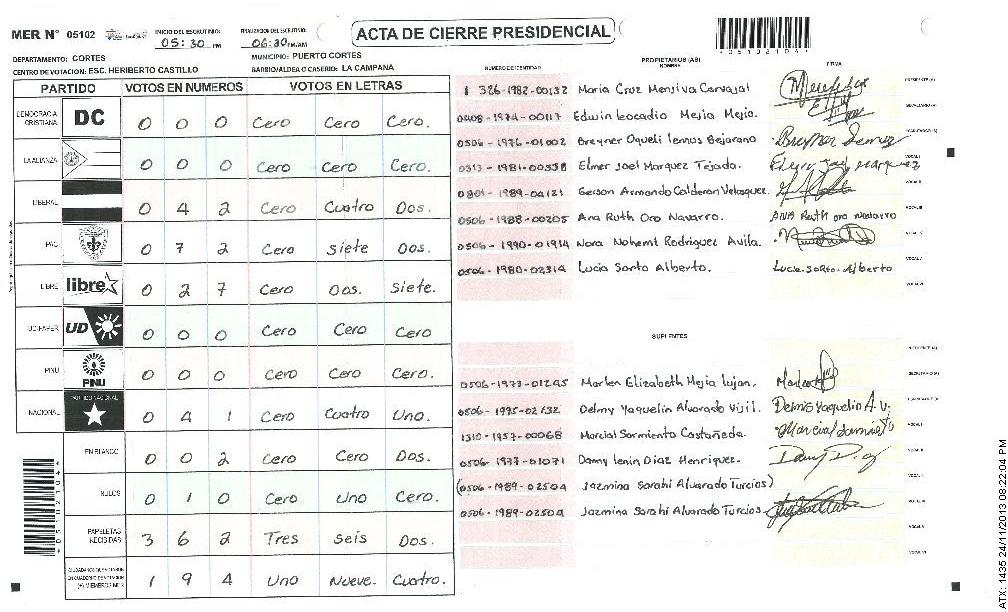 MER N° 05102 INICIO DEL ESCRUTINIO: 05:30 PM FINALIZACION DEL ESCRUTINIO: 06:30 PM/AM ACTA DE CIERRE PRESIDENCIAL
*05102104*
DEPARTAMENTO: CORTES MUNICIPIO: PUERTO CORTES
CENTRO DE VOTACION: ESC. HERIBERTO CASTILLO BARRIO/ALDEA O CASERIO: LA CAMPANA
PARTIDO VOTOS EN NUMEROS VOTOS EN LETRAS
DEMOCRACIA CRISTIANA DC 0 0 0 Cero Cero Cero.
LA ALIANZA 0 0 0 Cero Cero Cero.
LIBERAL 0 4 2 Cero Cuatro Dos.
PAC 0 7 2 Cero siete Dos.
LIBRE libre 0 2 7 Cero Dos. Siete.
UD-FAPER UD 0 0 0 Cero Cero Cero
PINU PINU 0 0 0 Cero Cero Cero.
NACIONAL PARTIDO NACIONAL 0 4 1 Cero Cuatro Uno.
EN BLANCO 0 0 2 Cero Cero Dos.
NULOS 0 1 0 Cero Uno Cero.
PAPELETAS RECIBIDAS 3 6 2 Tres seis Dos.
1 9 4 Uno Nueve. Cuatro.
*05102104*
NUMERO DE IDENTIDAD PROPIETARIOS (AS) NOMBRE FIRMA
1326-1982-00132 Maria Cruz Menjiva Carvajal PRESIDENTE (A)
0408-1974-00117 Edwin leocadio Mejia Mejia. SECRETARIO (A)
0506-1976-01002 Breyner Oqueli lemus Bejarano ESCRUTADOR (A)
0313-1981-00338 Elmer Joel Marquez Tejada. Elmer Joel Marquez VOCAL I
0801-1989-04121 Gerson Armando Calderon Velasquez. VOCAL II
0506-1988-00205 Ana Ruth Oro Navarro. ANA Ruth oro navarro VOCAL III
0506-1990-01914 Nora Nohemt Rodriguez Avila. VOCAL IV
0506-1980-02314 Lucia Sorto Alberto. Lucia Sorto Alberto VOCAL V
SUPLENTES
PRESIDENTE (A)
0506-1977-01245 Marlen Elizabeth Mejia lujan. SECRETARIO (A)
0506-1995-02632 Delmy Yaquelin Alvarado Vijil. Delmis Yaquelin A. V. ESCRUTADOR (A)
1310-1957-00068 Marcial Sarmiento Castañeda. Marcial Sarmiento VOCAL I
0506-1977-01071 Danny lenin Diaz Henriquez. VOCAL II
(0506-1989-02504 Jazmina Sarahi Alvarado Turcios)
0506-1989-02504 Jazmina Sarahi Alvarado Turcios
ATX: 1435 24/11/2013 08:22:04 PM